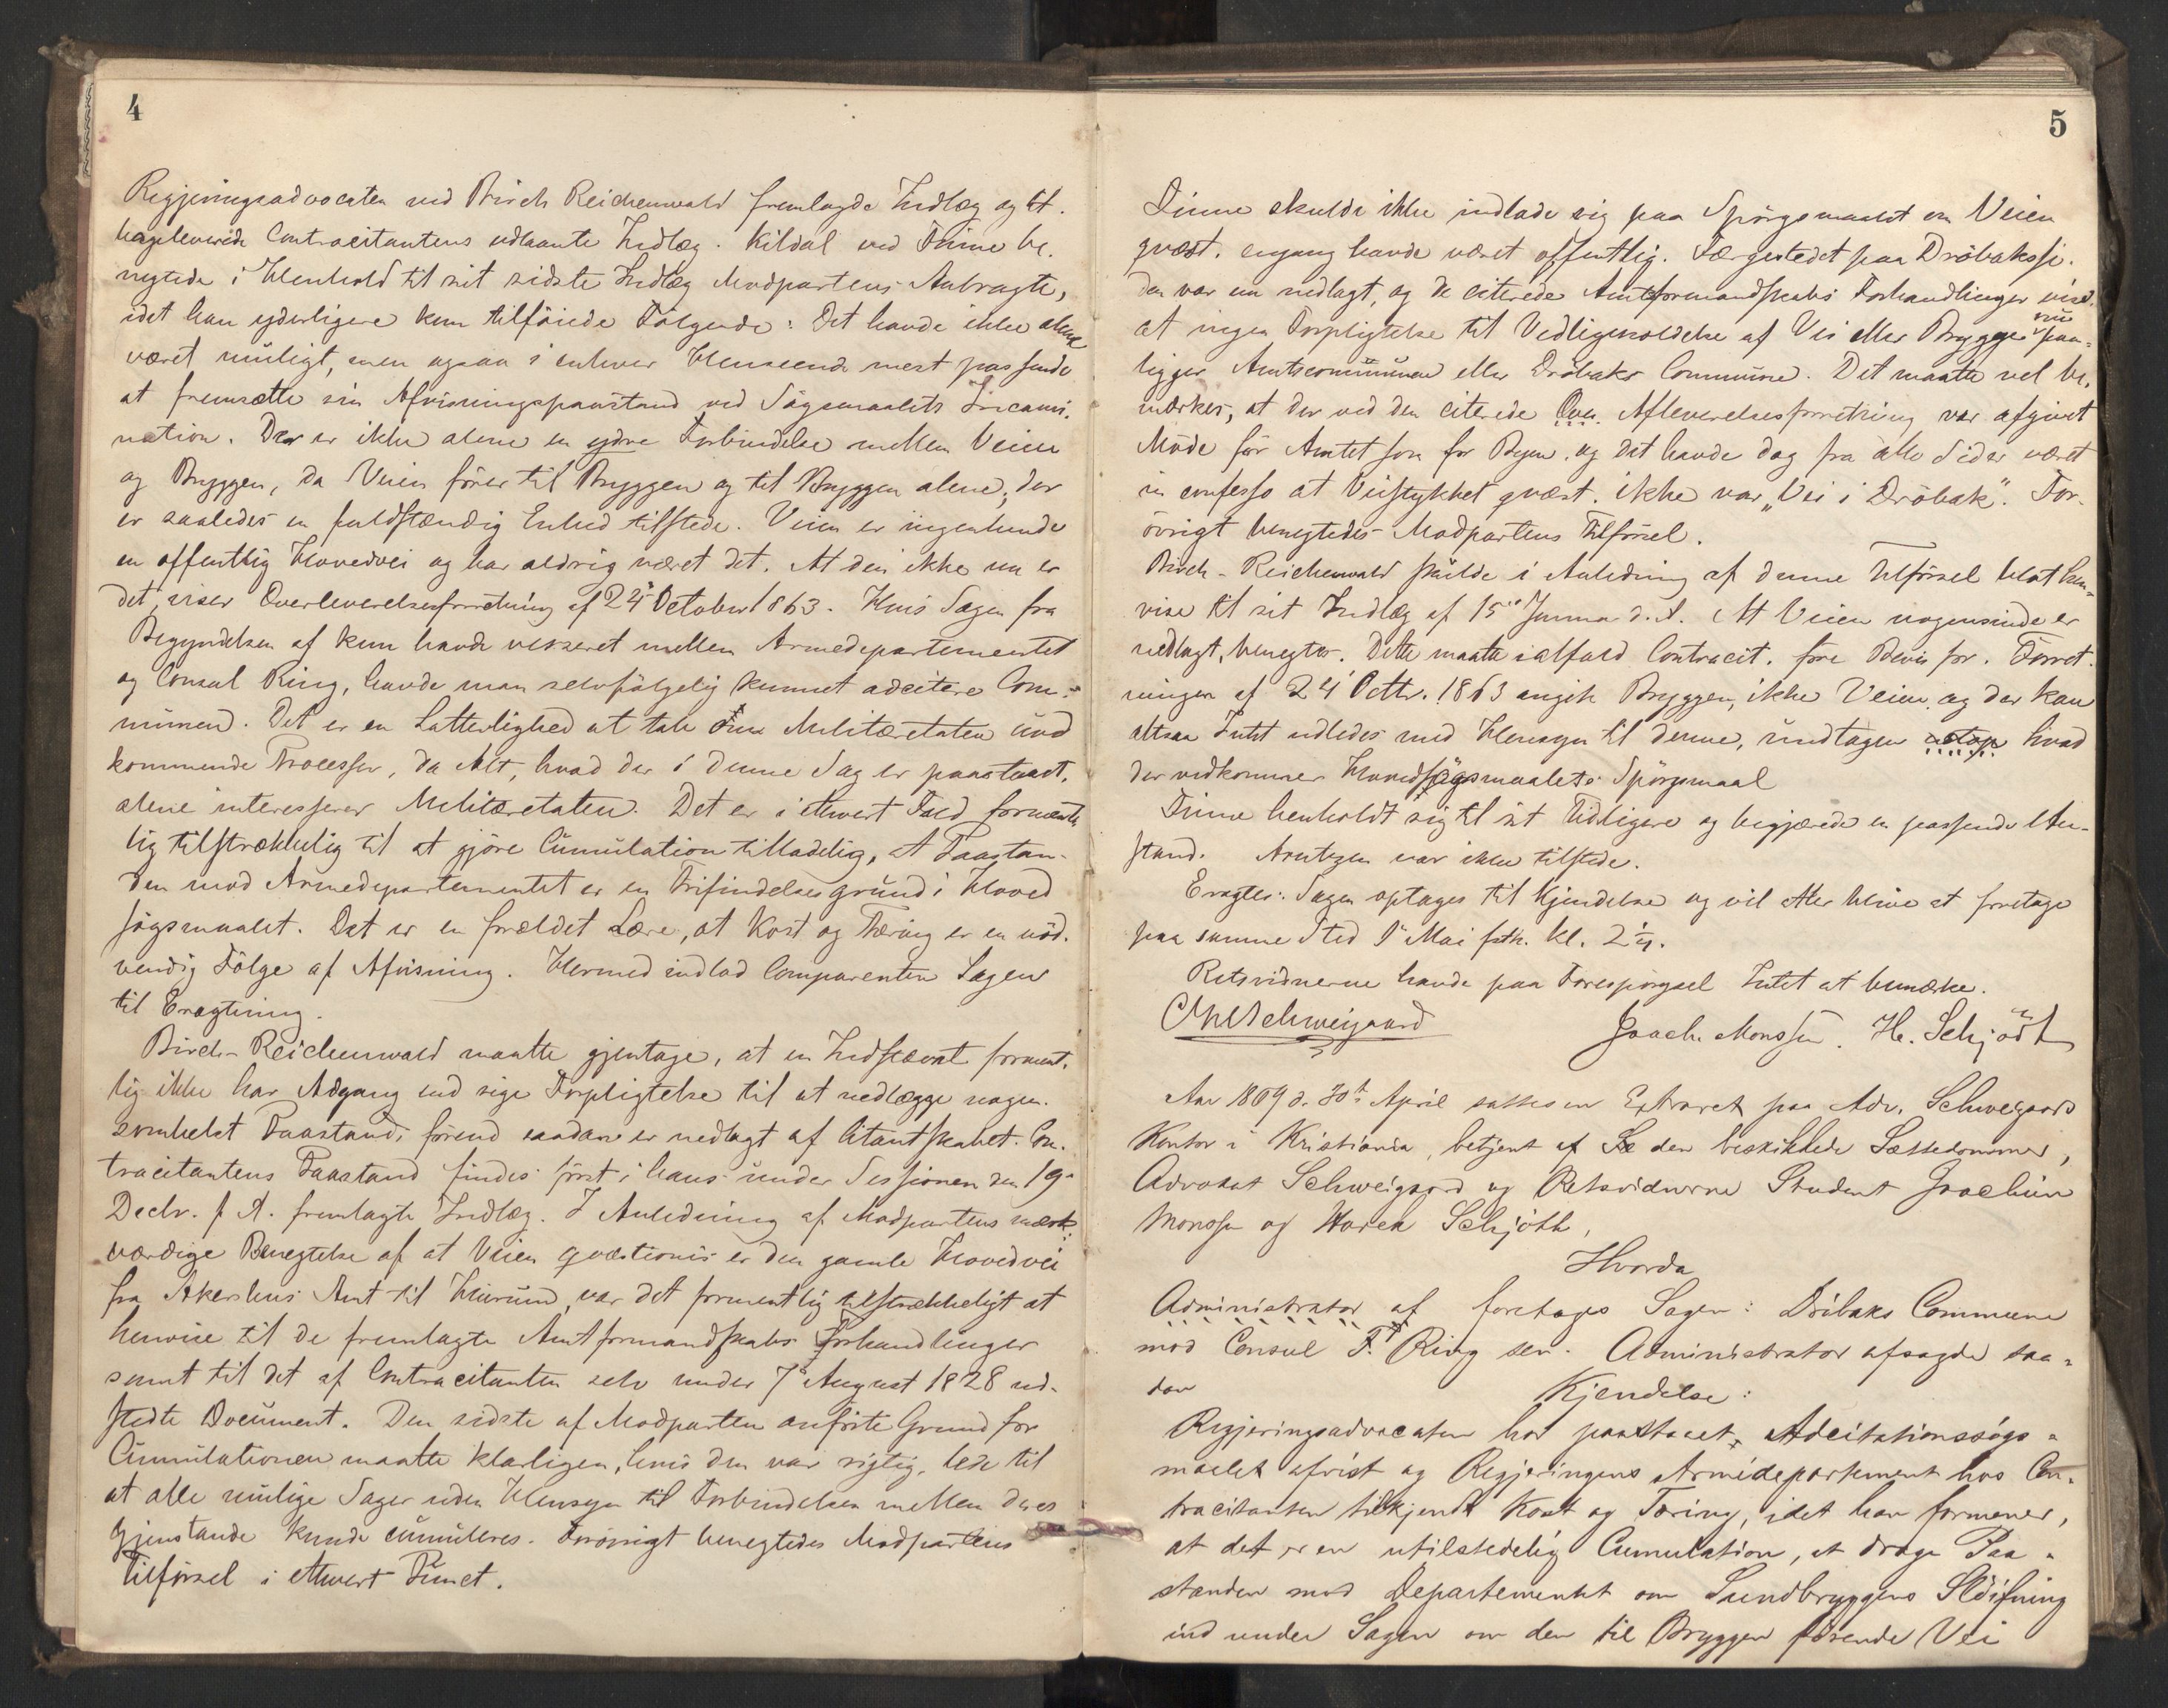 4
Regjeringsadvocaten ved Birch Reichenwald fremlagde Indlæg og ti-
bageleverede Contracitantens udlaante Indlæg. Kildal ved Finne be-
negtede i Henhold til sit sidste Indlæg Modpartens Anbragte,
idet han yderligere kun tilföiede Fölgende: Det havde ikke alene
været muligt, men ogsaa i enhver Henseende mest passende
at fremsætte sin Afvisningspaastand ved Sögsmaalets Incami-
nation. Der er ikke alene en ydre Forbindelse mellem Veien
og Bryggen, da Veien förer til Bryggen og til Bryggen alene; der
er saaledes en fuldstændig Enhed tilstede. Veien er ingenlunde
en offentlig Hovedvei og har aldrig været det. At den ikke nu er
det, viser Overleverelsesforretning af 24 October 1863. Hvis Sagen fra
Begyndelsen af kun havde verseret mellem Armedepartementet
og Consul Ring, havde man selvfölgelig kunnet adcitere Com-
munen. Det er en Latterlighed at tale om Militæretaten uved
kommende Processer, da Alt, hvad der i denne Sag er paastaaet,
alene interesserer Militæretaten. Det er i ethvert Fald forment-
lig tilstrækkelig til at gjöre Cumulation tilladelig, at Paastan-
den mod Armedepartementet er en Frifindelsesgrund i Hoved
sögsmaalet. Det er en forældet Lære, at Kost og Tæring er en nöd-
vendig Fölge af Afvisning. Hermed indlod Comparenten Sagen
til Eragtning.
Birch-Reichenwald maatte gjentage, at en Indstævnt forment-
lig ikke har Adgang end sige Forpligtelse til at nedlægge nogen-
somhelst Paastand, förend saadan er nedlagt af Citantskabet. Con-
tracitantens Paastand findes först i hans under Sessionen den 19
Decbr. f. A. fremlagte Indlæg. I Anledning af Modpartens mærk-
værdige Benegtelse af at Veien qvæstionis er den gamle Hovedvei
fra Akershus Amt til Hurum, var det formentlig tilstrækkeligt at
henvise til de fremlagte Amtformandskabs Forhandlinger
samt til det af Contracitanten selv under 7 August 1828 ud-
stedte Document. Den sidste af Modparten anförte Grund for
Cumulationen maatte klarligen, hvis den var rigtig, lede til
at alle mulige Sager uden Hensyn til Forbindelsen mellem deres
Gjenstande kunde cumuleres. Forövrigt benegtedes Modpartens
Tilförsel i ethvert Punct.
5
Finne skulde ikke indlade sig paa Spörgsmaalet om Veien
qvæst. engang havde været offentlig. Færgestedet paa Dröbakssi-
den var nu nedlagt, og de citerede Amtsformandskabs Forhandlinger vise,
at ingen Forpligtelse til Vedligeholdelse af Vei eller Brygge nu paa-
ligger Amtscommunen eller Dröbaks Commune. Det maatte vel be-
mærkes, at der ved den citerede Over Afleverelsesforretning var afgivet
Möde för Amtet som for Byen, og det havde dog fra alle Sider været
in confesso at Veistykket qvæst. ikke var „Vei i Dröbak". For-
övrigt benegtedes Modpartens Tilförsel.
Birch-Reichenwald skulde i Anledning af denne Tilförsel blot hen-
vise til sit Indlæg af 15de d. A. At Veien nogensinde er
nedlagt, benegtes. Dette maatte ialfald Contracit. före Bevis for. Forret-
ningen af 24 Octbr. 1863 angik Bryggen, ikke Veien, og der kan
altsaa Intet udledes med Hensyn til denne, undtagen hvad
der vedkommer Hovedsögsmaalets Spörgsmaal
Finne henholdt sig til sit Tidligere og begjærede en passende An-
stand. Arntzen var ikke tilstede.
Eragtes: Sagen optages til Kjendelse og vil atter blive at foretage
paa samme Sted 1 Mai fstk. kl. 2¼.
Retsvidnerne havde paa Forespörgsel Intet at bemærke.
Chr Schweigaard Joach. Monssen. H. Schjödt
Aar 1869 d. 30te April sattes en Extraret paa Adv. Schweigaards
Kontor i Kristiania, betjent af Se den beskikkede Sættedommer,
Advokat Schweigaard og Retsvidnerne Student Joachim
Monssen og Schjött,
Hvorda
Administrator af foretoges Sagen: Dröbaks Commune
mod Consul F. Ring sen. Administrator afsagde saa-
dan Kjendelse:
Regjeringsadvocaten har paastaaet, Adcitationssögs-
maalet afvist og Regjeringens Armédepartement hos Con-
tracitanten tilkjendt Kost og Tæring, idet han formener,
at det er en utilstedelig Cumulation, at drage Paa-
standen mod Departementet om Sundbryggens Slöifning
ind under Sagen om den til Bryggen förende Vei